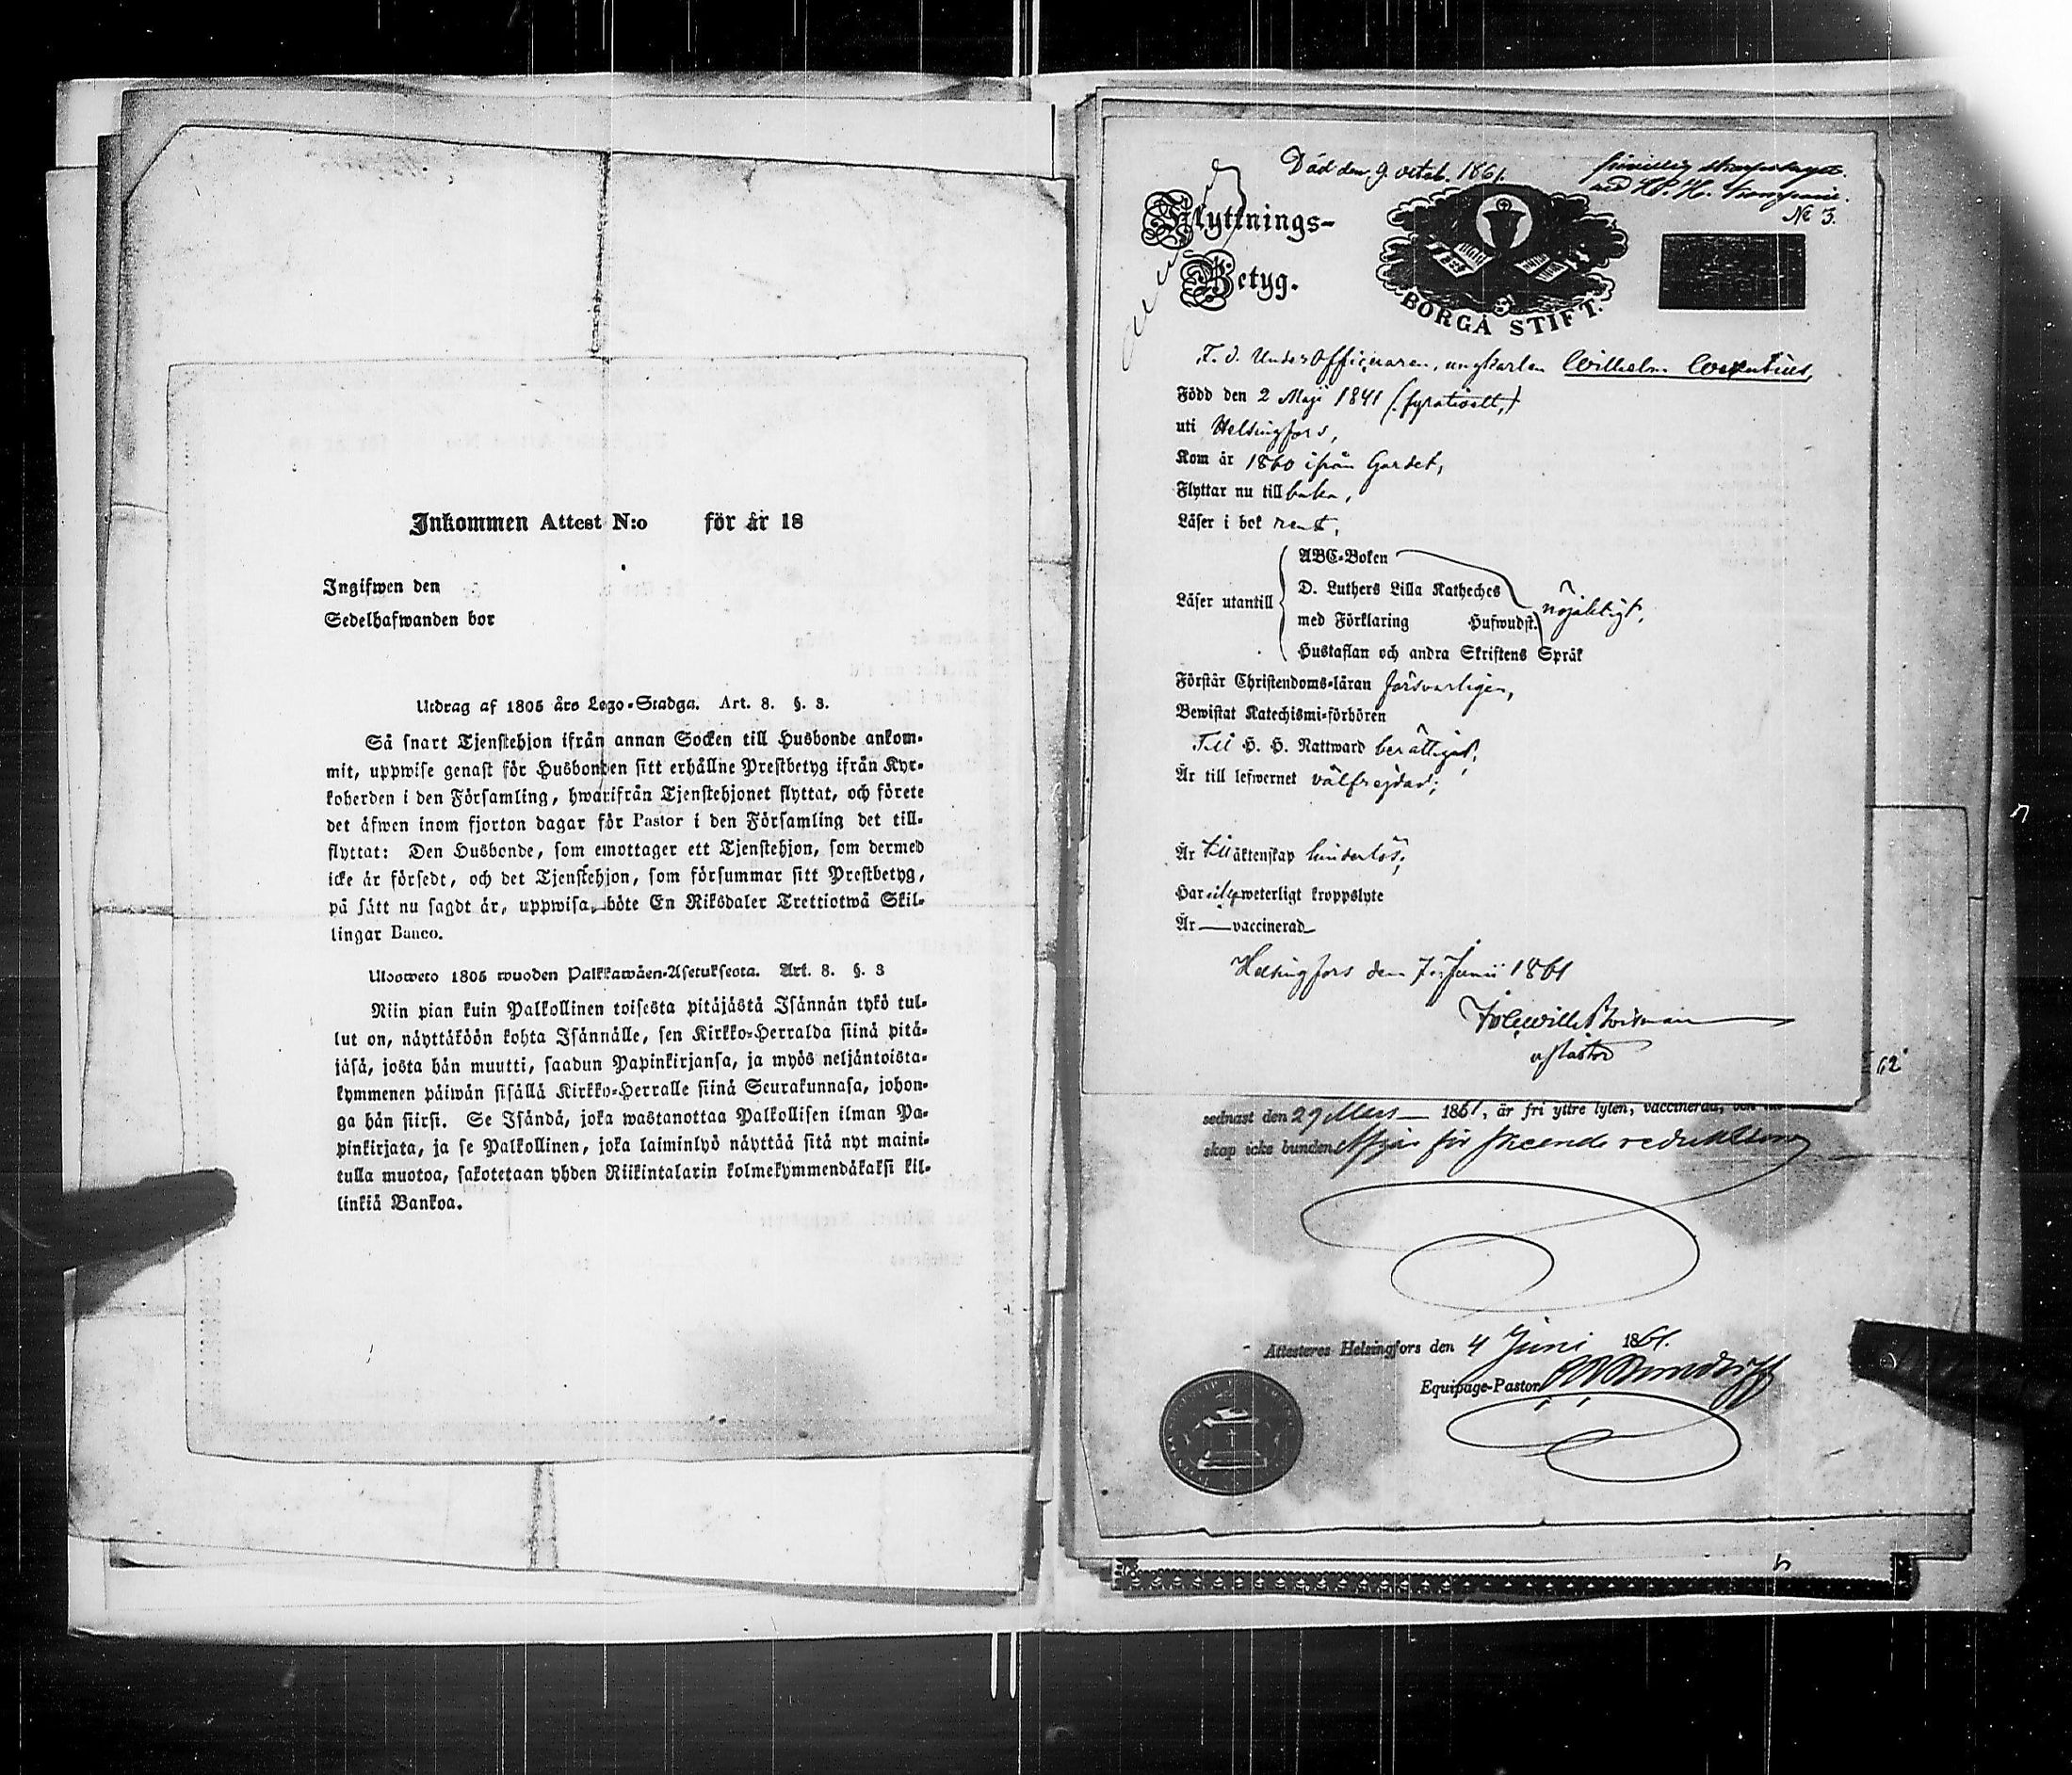 Inkommen Attest N:o för år 18
Ingifwen den
Sedelhafwanden bor
Utdrag af 1805 års Lego-Stadga. Art. 8. §. 3.
Så snart Tjenstehjon ifrån annan Socken till Husbonde ankom-
mit, uppwise genast för Husbonden sitt erhållne Prestbetyg ifrån Kyr-
koherden i den Församling, hwarifrån Tjenstehjonet flyttat, och förete
det äfwen inom fjorton dagar för Pastor i den Församling det till-
flyttat: Den Husbonde, som emottager ett Tjenstehjon, som dermed
icke är försedt, och det Tjenstehjon, som försummar sitt Prestbetyg,
på sätt nu sagdt är, uppwisa, böte En Riksdaler Trettiotwå Skil-
lingar Banco.
Ulosweto 1805 wuoden Palkkawäen-Asetuksesta. Art. 8. §. 3
Niin pian kuin Palkollinen toisesta pitäjästä Isännän tykö tul-
lut on, näyttäköön kohta Isännälle, sen Kirkko-Herralda siinä pitä-
jäsä, josta hän muutti, saadun Papinkirjansa, ja myös neljäntoista-
kymmenen päiwän sisällä Kirkko-Herralle siinä Seurakunnasa, johon-
ga hän siirsi. Se Isändä, joka wastanottaa Palkollisen ilman Pa-
pinkirjata, ja se Palkollinen, joka laiminlyö näyttää sitä nyt maini-
tulla muotoa, sakotetaan yhden Riikintalarin kolmekymmendäkaksi kil-
linkiä Bankoa.
Död den 9 octob. 1861.
N:o 3.
Flyttnings-
Betyg.
BORGÅ STIFT.
F. d. Underofficiraren, ungkarlen Wilhelm
Född den 2 Maji 1841 (fyratioett,)
uti Helsingfors,
Kom år 1860 ifrån Gardet,
Flyttar nu tillbaka,
Läser i bok rent,
Läser utantill
ABC-Boken
D. Luthers Lilla Katheches
med Förklaring Hufwudst. nöjaktigt,
Hustaflan och andra Skriftens Språk
Förstår Christendoms-läran försvarligen,
Bewistat Katechismi-förhören
Till H. H. Nattward berättigad,
Är till lefwernet välfrejdad;
Är till äktenskap hinderlös;
Har weterligt kroppslyte
Är — vaccinerad
Helsingfors den 7 Junii 1861
sednast den 29 Mars 1861, är fri yttre lyten, vaccinerad,
skap icke bunden. Afgår för skeende reduktion
62
Attesteras Helsingfors den 4 Juni 1861.
Equipage-Pastor